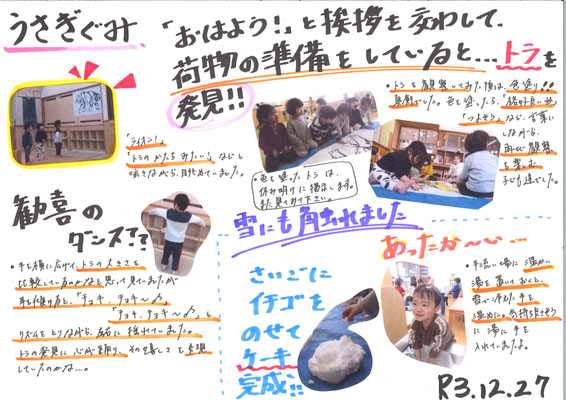 うさぎぐみ
「おはよう!」と挨拶を交わして、
荷物の準備をしていると…トラを
発見!!
「ライオン!」
「トラのかたちみたい!」などと
呟きながら、眺めていました。
・トラを観察してみた後は、色塗り!!
真剣でした。色を塗ったら、「格好良いね」
「つよそう」など、言葉に
しながら、
再び観察
を楽しむ
子ども達でした。
・色を塗ったトラは、
休み明けに掲示します。
また見てみて下さい。
歓喜の
ダンス??
・手を横に広げて、トラの大きさを
比較しているのかなと思って見ていましたが
耳を傾けると、「チョキ、チョキ〜♪
「チョキ、チョキ〜♪」と
リズムをとりながら、左右に揺れていました。
トラの発見に心が踊り、その嬉しさを表現
していたのかな…。
雪にも触れました
さいごに
イチゴを
のせて
ケーキ
完成!!
あったか〜い…
・手洗い場に温かい
湯を置いておくと、
雪で冷えた手を
温めに。気持ち良さそう
に湯に手を
入れていましたよ。
R3.12.27